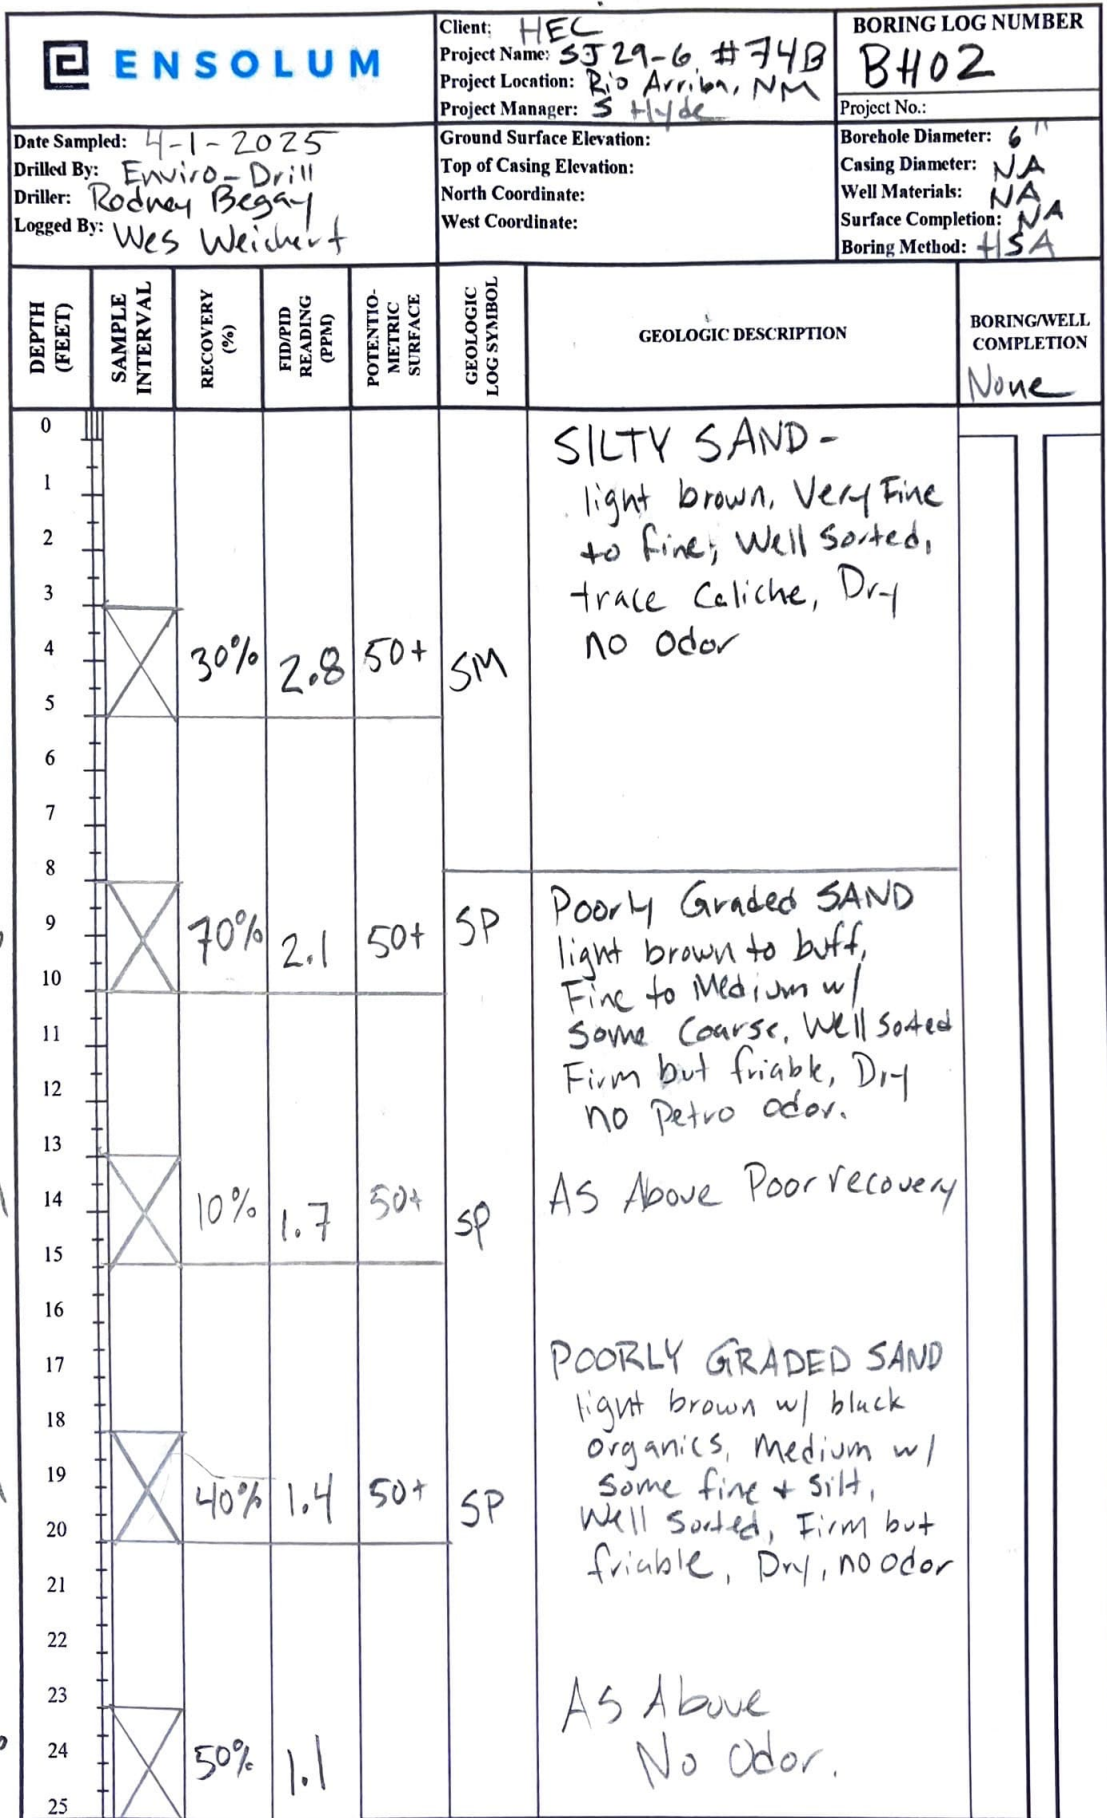 ENSOLUM
Client: HEC
Project Name: SJ 29-6 #74B
Project Location: Rio Arriba, NM
Project Manager: S Hyde
BORING LOG NUMBER
BH02
Project No.:
Date Sampled: 4-1-2025
Drilled By: Enviro-Drill
Driller: Rodney Begay
Logged By: Wes Weichert
Ground Surface Elevation:
Top of Casing Elevation:
North Coordinate:
West Coordinate:
Borehole Diameter: 6"
Casing Diameter: NA
Well Materials: NA
Surface Completion: NA
Boring Method: HSA
DEPTH
(FEET)
SAMPLE
INTERVAL
RECOVERY
(%)
FID/PID
READING
(PPM)
POTENTIO-
METRIC
SURFACE
GEOLOGIC
LOG SYMBOL
GEOLOGIC DESCRIPTION
BORING/WELL
COMPLETION
None
0
SILTY SAND-
1
light brown, Very Fine
2
to fine, Well Sorted,
3
trace Caliche, Dry
4 30% 2.8 50+ SM
no odor
5
6
7
8
9 70% 2.1 50+ SP
Poorly Graded SAND
light brown to buff,
10
Fine to Medium w/
11
Some Coarse, Well Sorted
12
Firm but friable, Dry
no Petro odor.
13
14 10% 1.7 50+ SP
As Above Poor recovery
15
16
17
POORLY GRADED SAND
18
light brown w/ black
organics, Medium w/
19 40% 1.4 50+ SP
Some fine + Silt,
20
Well Sorted, Firm but
friable, Dry, no odor
21
22
23
As Above
24 50% 1.1
No Odor.
25